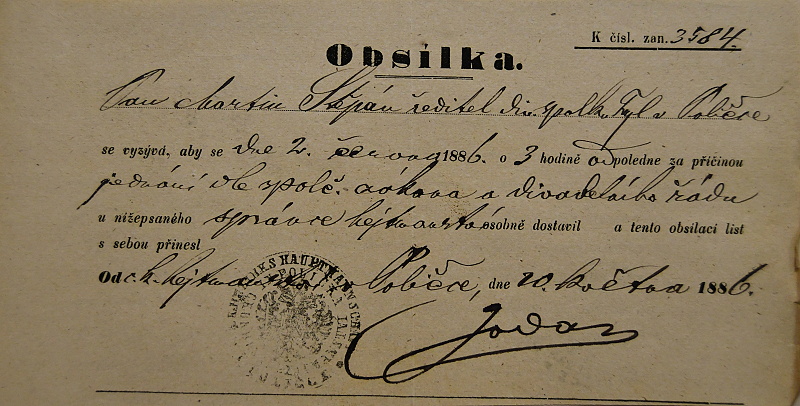 K čísl. zan. 3584.
Obsílka.
Pan Martin Štěpán ředitel div. spolku Tyl v Poličce
se vyzývá, aby se dne 2. června 1886. o 3 hodině odpoledne za příčinou
jednání dle společ. zákona a divadelního řádu
u nížepsaného správce hejtmanství osobně dostavil a tento obsílací list
s sebou přinesl
Od c. k. hejtmanství v Poličce, dne 20. května 1886.
HAUPTMANNSCHAFT